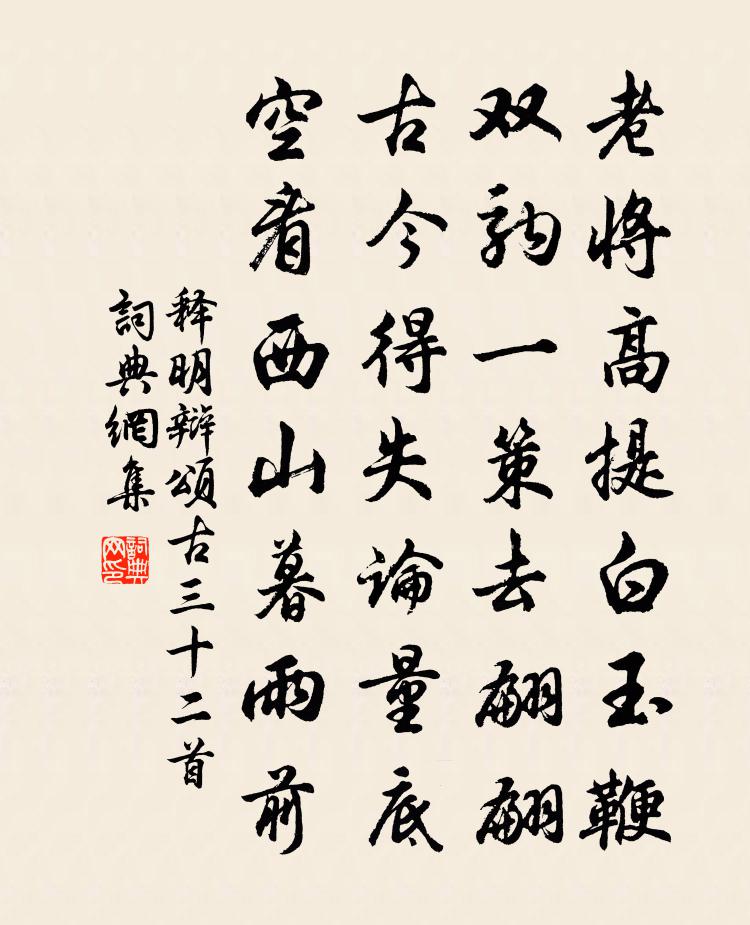 老將高提白玉鞭
双駒一策去翩翩
古今得失論量底
空看西山暮雨前
释明辯頌古三十二首
詞典網集
詞典网印